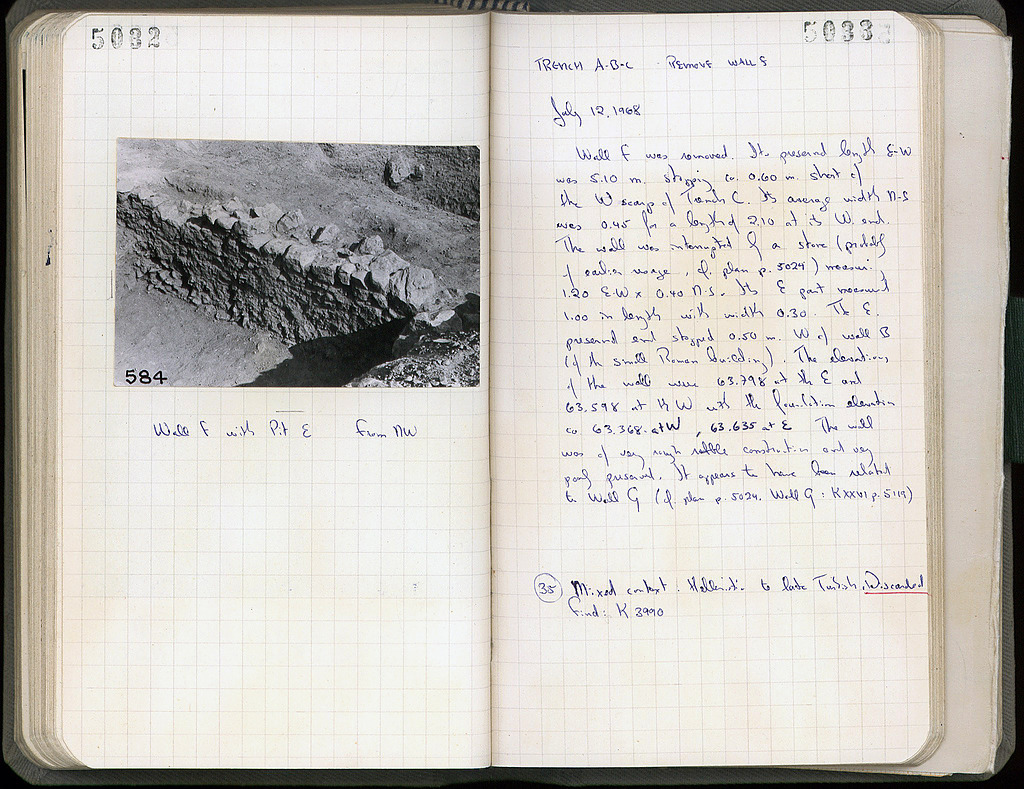 5032
584
Wall F with Pit E From NW
5033
TRENCH A-B-C REMOVE WALLS
July 12, 1968
Wall F was removed. Its preserved length E-W
was 5.10 m. stopping ca. 0.60 m. short of
the W scarp of Trench C. Its average width N-S
was 0.45 for a length of 2.10 at its W end.
The wall was interrupted by a stone (probably
of earlier usage, cf. plan p. 5024)
1.20 E-W x 0.40 N-S. Its E part measured
1.00 in length with width 0.30. The E.
preserved end stopped 0.50 m. W of wall B
(of the small Roman building). The elevations
of the wall were 63.798 at the E and
63.598 at the W with the foundation elevation
ca. 63.368 at W, 63.635 at E The wall
was of very rough rubble construction and very
poorly preserved. It appears to have been related
to Wall G (cf. plan p. 5024, Wall G: K XXVI p. 5119)
35 Mixed context: Hellenistic to late Turkish, Discarded
Find: K 3990